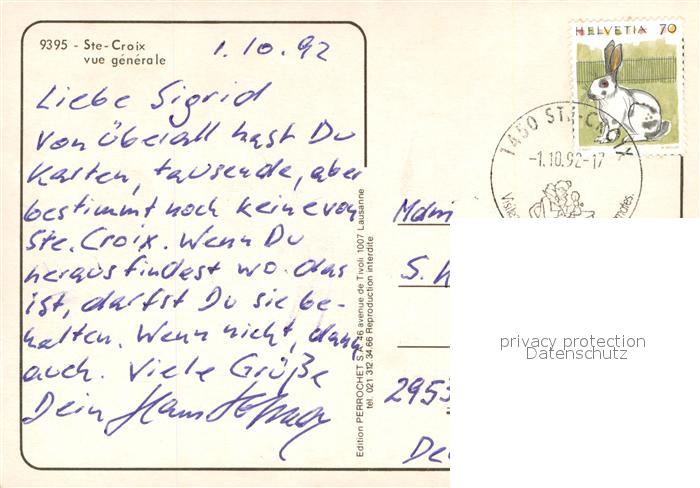 9395 - Ste-Croix
vue générale
1.10.92
Liebe Sigrid
Von Überall hast Du
Karten, tausende, aber
bestimmt noch keine von
Ste. Croix. Wenn Du
herausfindest wo das
ist, darfst Du sie be-
halten. Wenn nicht, dann
auch. Viele Grüße
Dein Hans
Edition PERROCHET S.A. 46 avenue de Tivoli 1007 Lausanne
tél. 021 312 34.66 Reproduction interdite
HELVETIA 70
1450 STE-CROIX
-1.10.92-17
S.
2953
privacy protection
Datenschutz